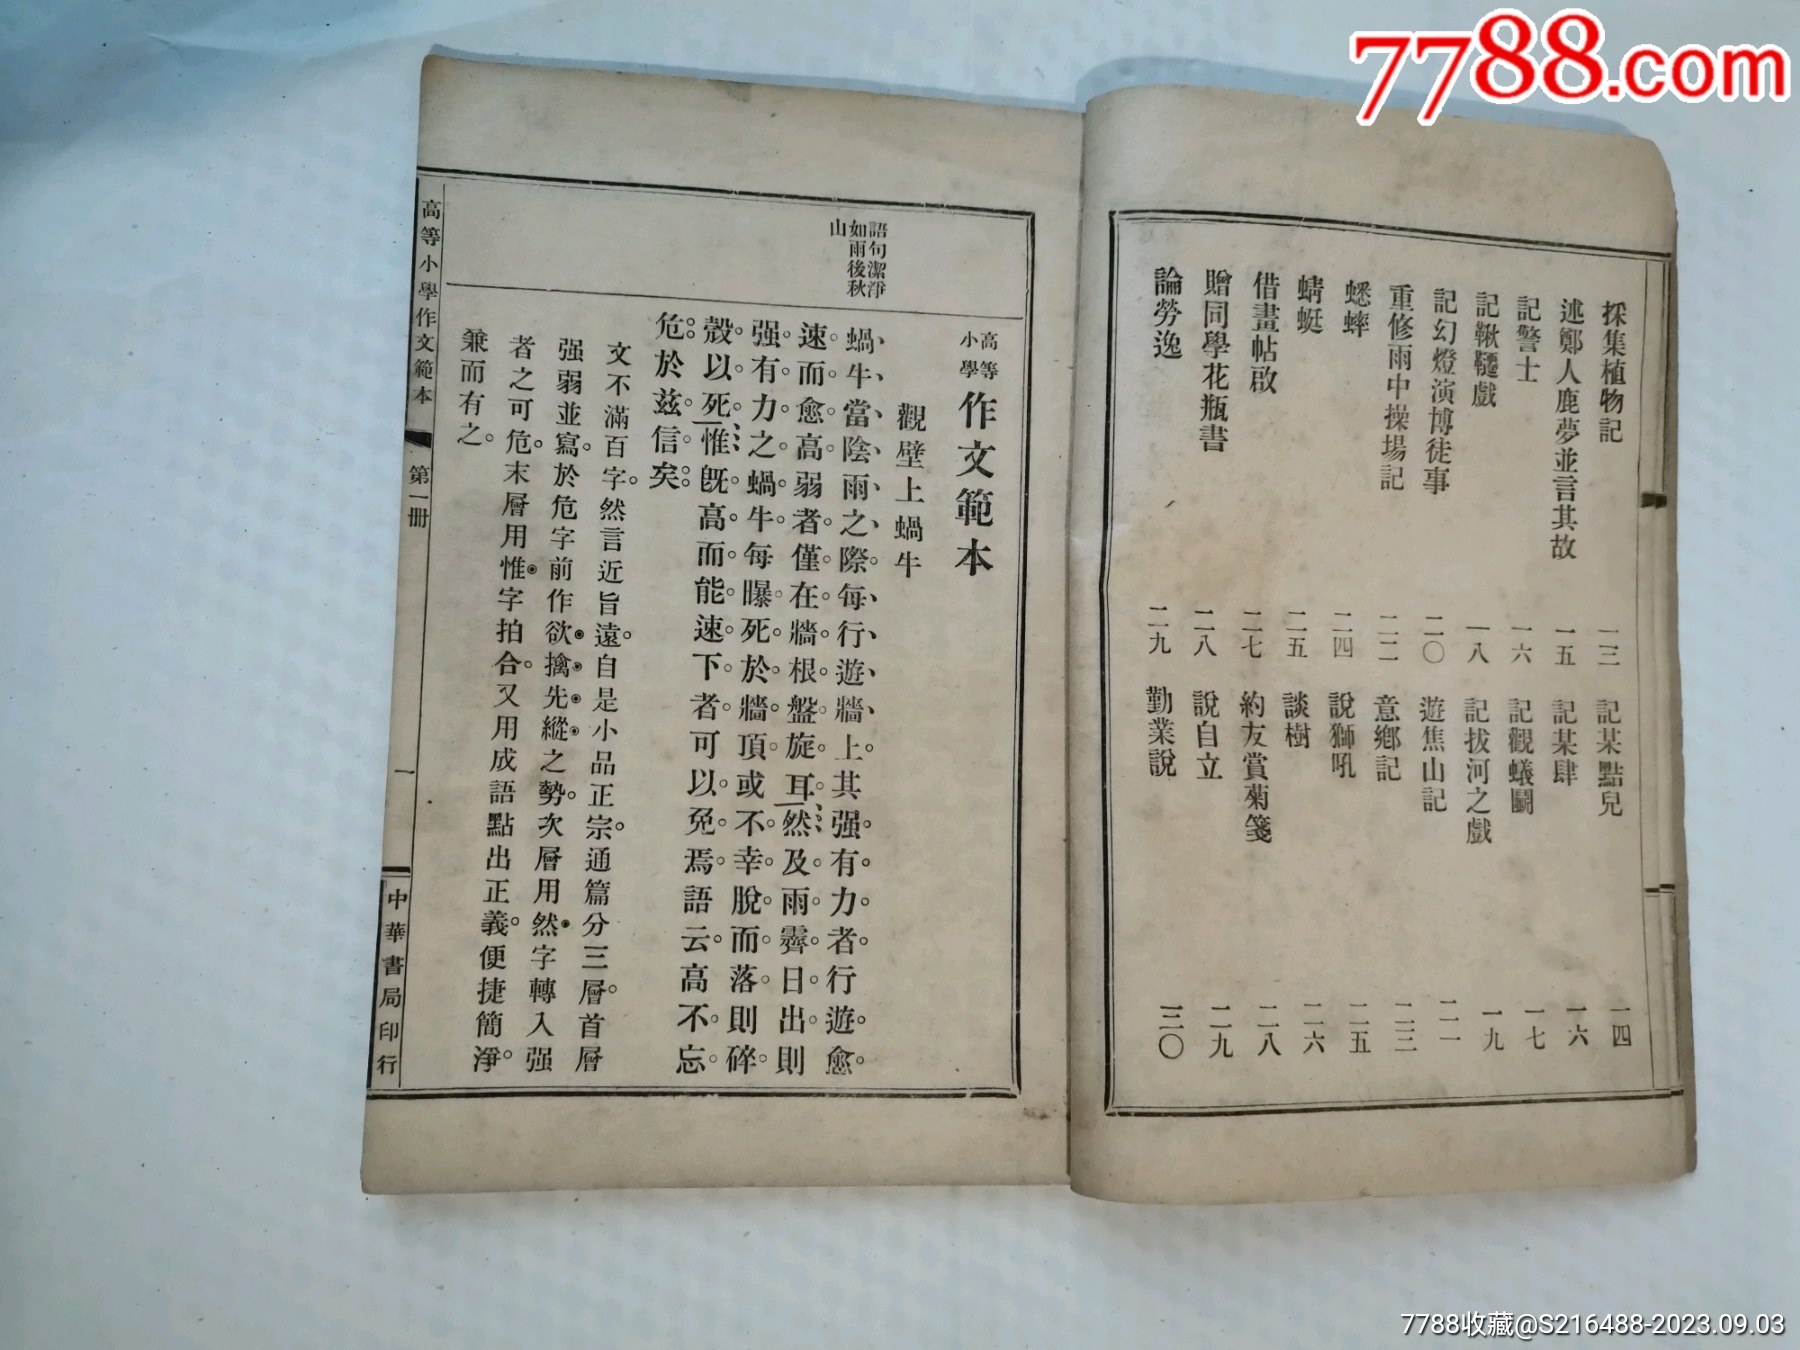 7788.com
採集植物記 一三 記某黠兒 一四
述鄭人鹿夢並言其故 一五 記某肆 一六
記警士 一六 記觀蟻鬭 一七
記鞦韆戲 一八 記拔河之戲 一九
記幻燈演博徒事 二〇 遊焦山記 二一
重修雨中操場記 二二 意鄉記 二三
蟋蟀 二四 說獅吼 二五
蜻蜓 二五 談樹 二六
借畫帖啟 二七 約友賞菊箋 二八
贈同學花瓶書 二八 說自立 二九
論勞逸 二九 勤業說 三〇
高等小學作文範本
觀壁上蝸牛
語句潔淨
如雨後秋
山
蝸、牛、當、陰、雨、之、際。每、行、遊、牆、上。其强。有。力。者。行遊。愈。
速。而。愈。高。弱者。僅。在。牆。根。盤。旋。耳。然及。雨。霽。日。出。則
强。有。力。之。蝸。牛。每。曝。死。於。牆。頂。或。不。幸。脫。而。落。則碎。
殼。以。死。惟旣。高。而。能。速。下。者。可以。免。焉。語云。高不。忘。
危。於茲。信。矣。
文不滿百字。然言近旨遠。自是小品正宗。通篇分三層。首層
强弱並寫。於危字前作欲擒先縱之勢。次層用然字轉入强
者之可危。末層用惟字拍合。又用成語點出正義。便捷簡淨。
兼而有之。
高等小學作文範本
第一冊
一
中華書局印行
7788收藏@S216488-2023.09.03